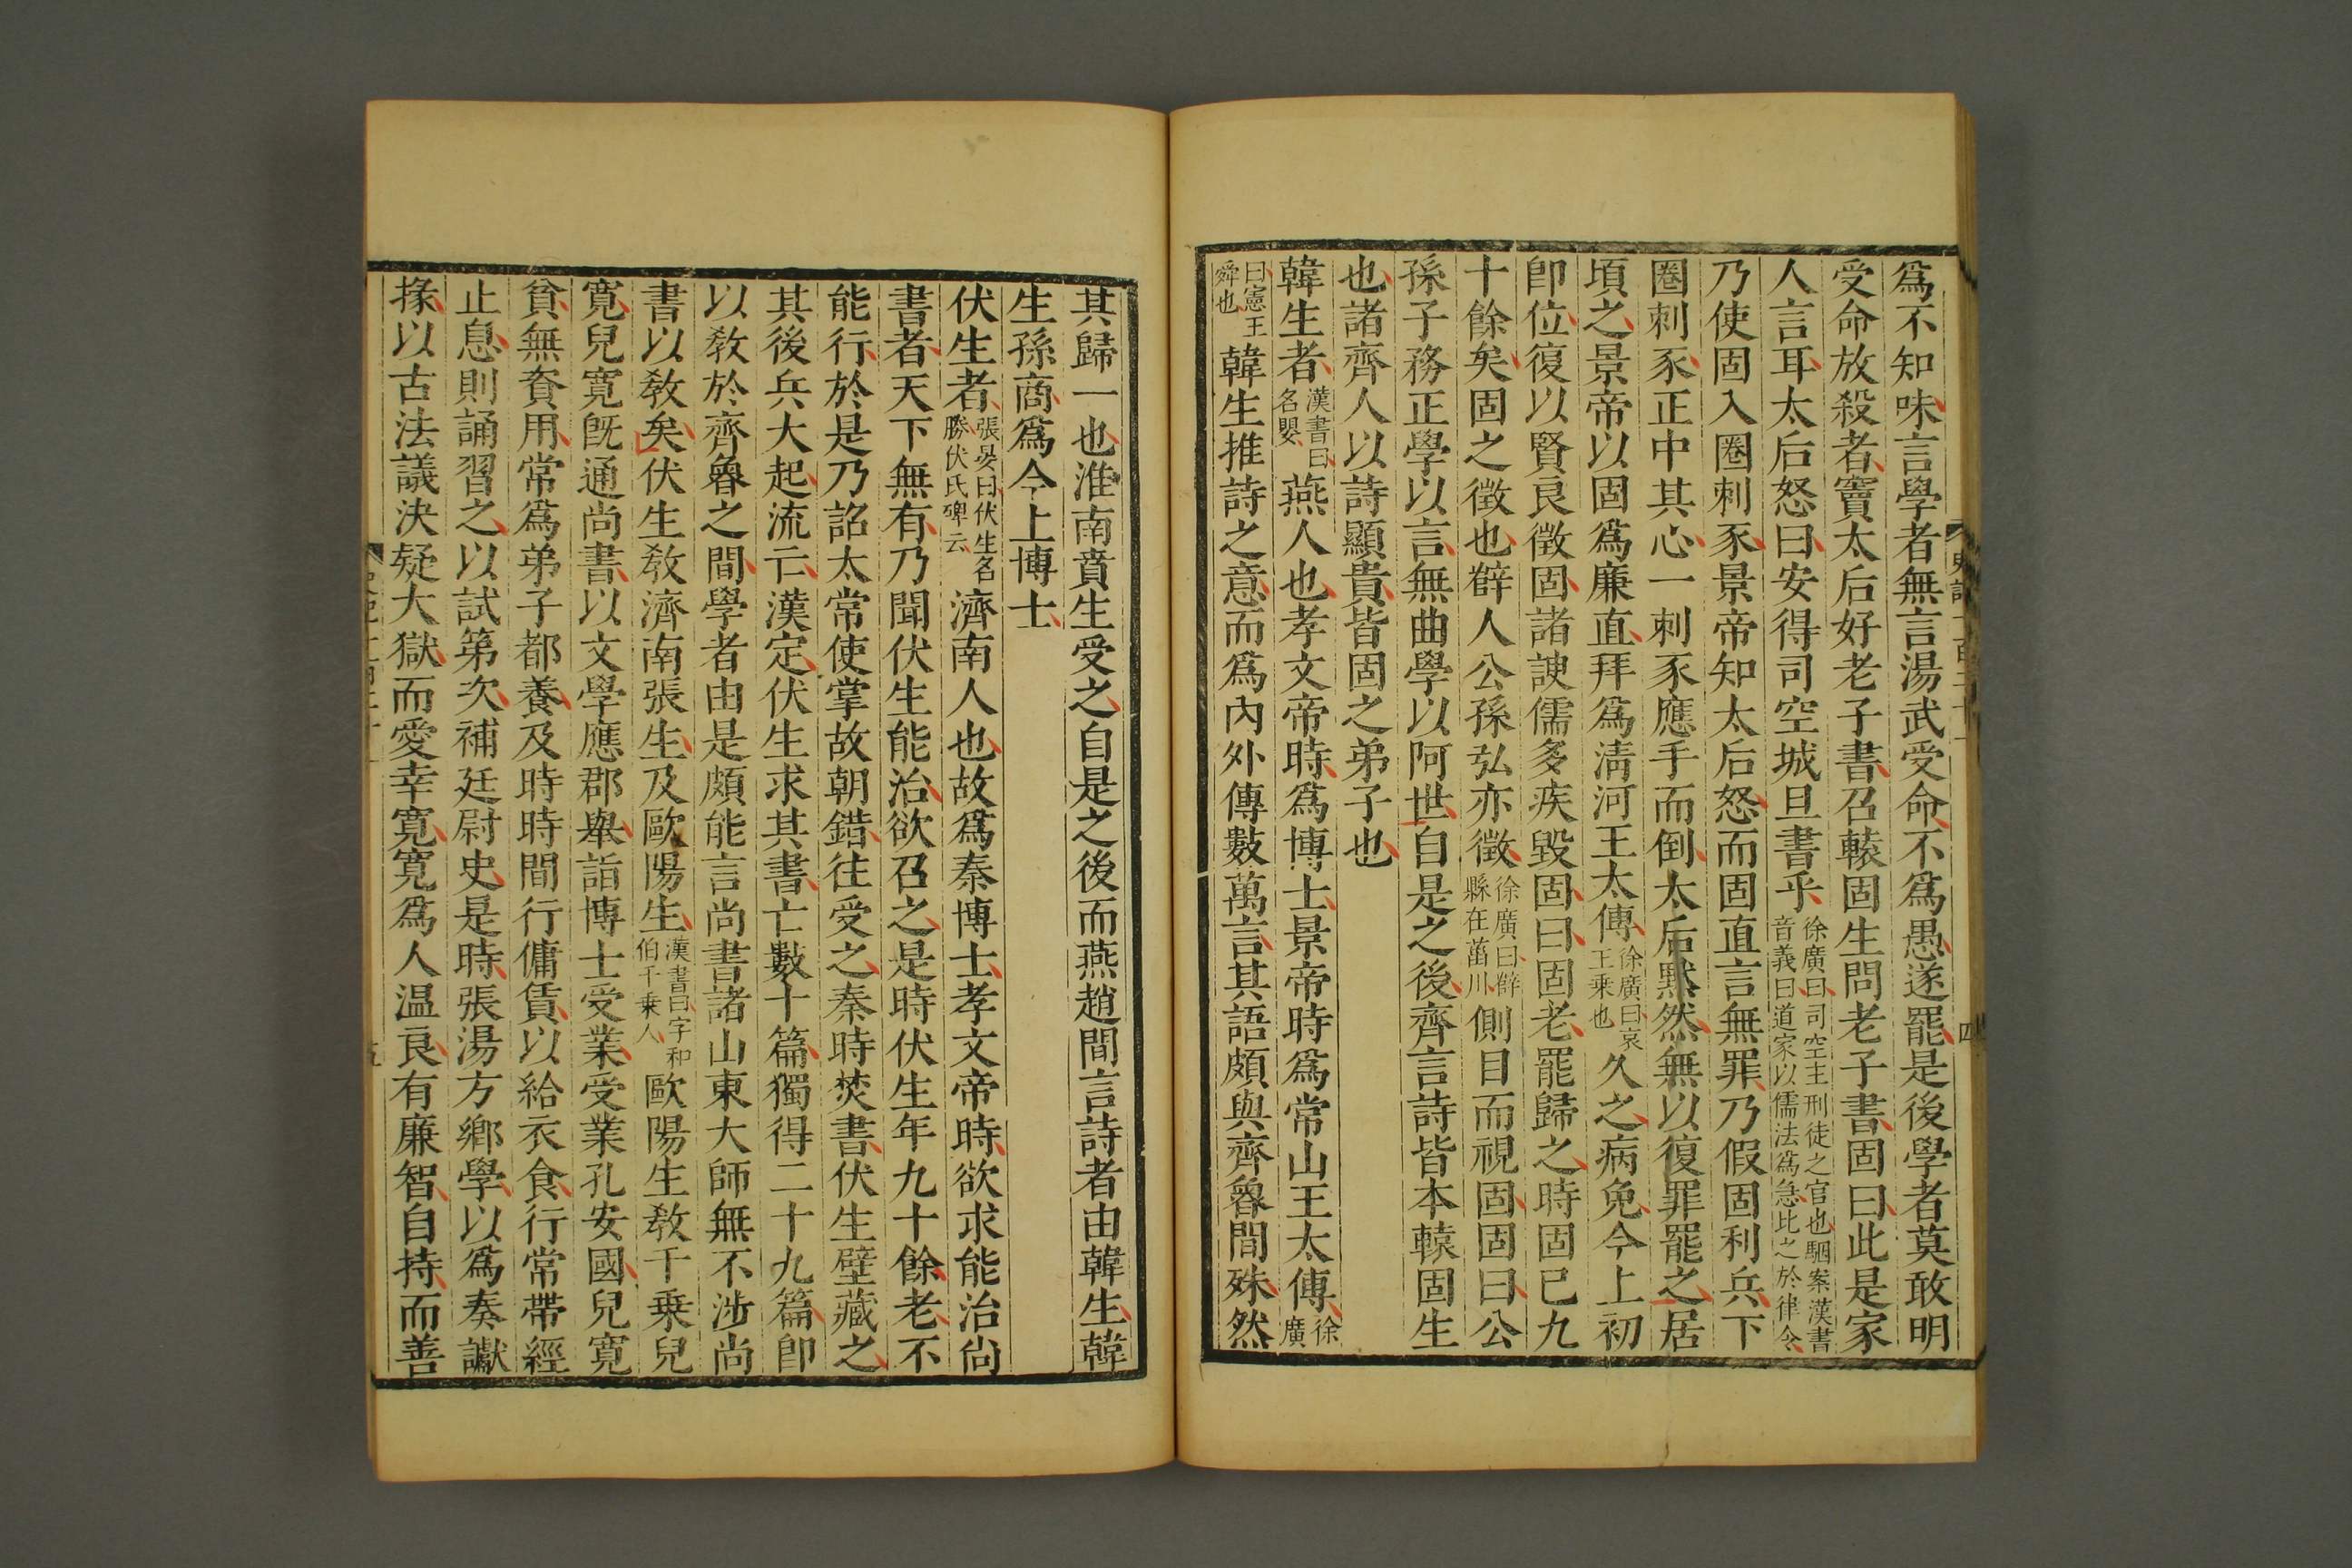 爲不知味言學者無言湯武受命不爲愚遂罷是後學者莫敢明
受命放殺者竇太后好老子書召轅固生問老子書固曰此是家
人言耳太后怒曰安得司空城旦書乎徐廣曰司空主刑徒之官也駰案漢書音義曰道家以儒法爲急比之於律令
乃使固入圈刺豕景帝知太后怒而固直言無罪乃假固利兵下
圈刺豕正中其心一刺豕應手而倒太后默然無以復罪罷之居
頃之景帝以固爲廉直拜爲淸河王太傅徐廣曰哀王乗也久之病免今上初
卽位復以賢良徵固諸諛儒多疾毀固曰固老罷歸之時固已九
十餘矣固之徵也薛人公孫弘亦徵徐廣曰薛縣在菑川側目而視固固曰公
孫子務正學以言無曲學以阿世自是之後齊言詩皆本轅固生
也諸齊人以詩顯貴皆固之弟子也
韓生者漢書曰名嬰燕人也孝文帝時爲博士景帝時爲常山王太傅徐廣
曰憲王舜也韓生推詩之意而爲內外傳數萬言其語頗與齊魯間殊然
其歸一也淮南賁生受之自是之後而燕趙間言詩者由韓生韓
生孫商爲今上博士
伏生者張晏曰伏生名勝伏氏碑云濟南人也故爲秦博士孝文帝時欲求能治尙
書者天下無有乃聞伏生能治欲召之是時伏生年九十餘老不
能行於是乃詔太常使掌故朝錯往受之秦時焚書伏生壁藏之
其後兵大起流亡漢定伏生求其書亡數十篇獨得二十九篇卽
以敎於齊魯之間學者由是頗能言尙書諸山東大師無不涉尙
書以敎矣伏生敎濟南張生及歐陽生漢書曰字和伯千乗人歐陽生敎千乗兒
寛兒寛旣通尙書以文學應郡舉詣博士受業受業孔安國兒寛
貧無資用常爲弟子都養及時時間行傭賃以給衣食行常帶經
止息則誦習之以試第次補廷尉史是時張湯方鄕學以爲奏讞
掾以古法議決疑大獄而愛幸寛寛爲人温良有廉智自持而善